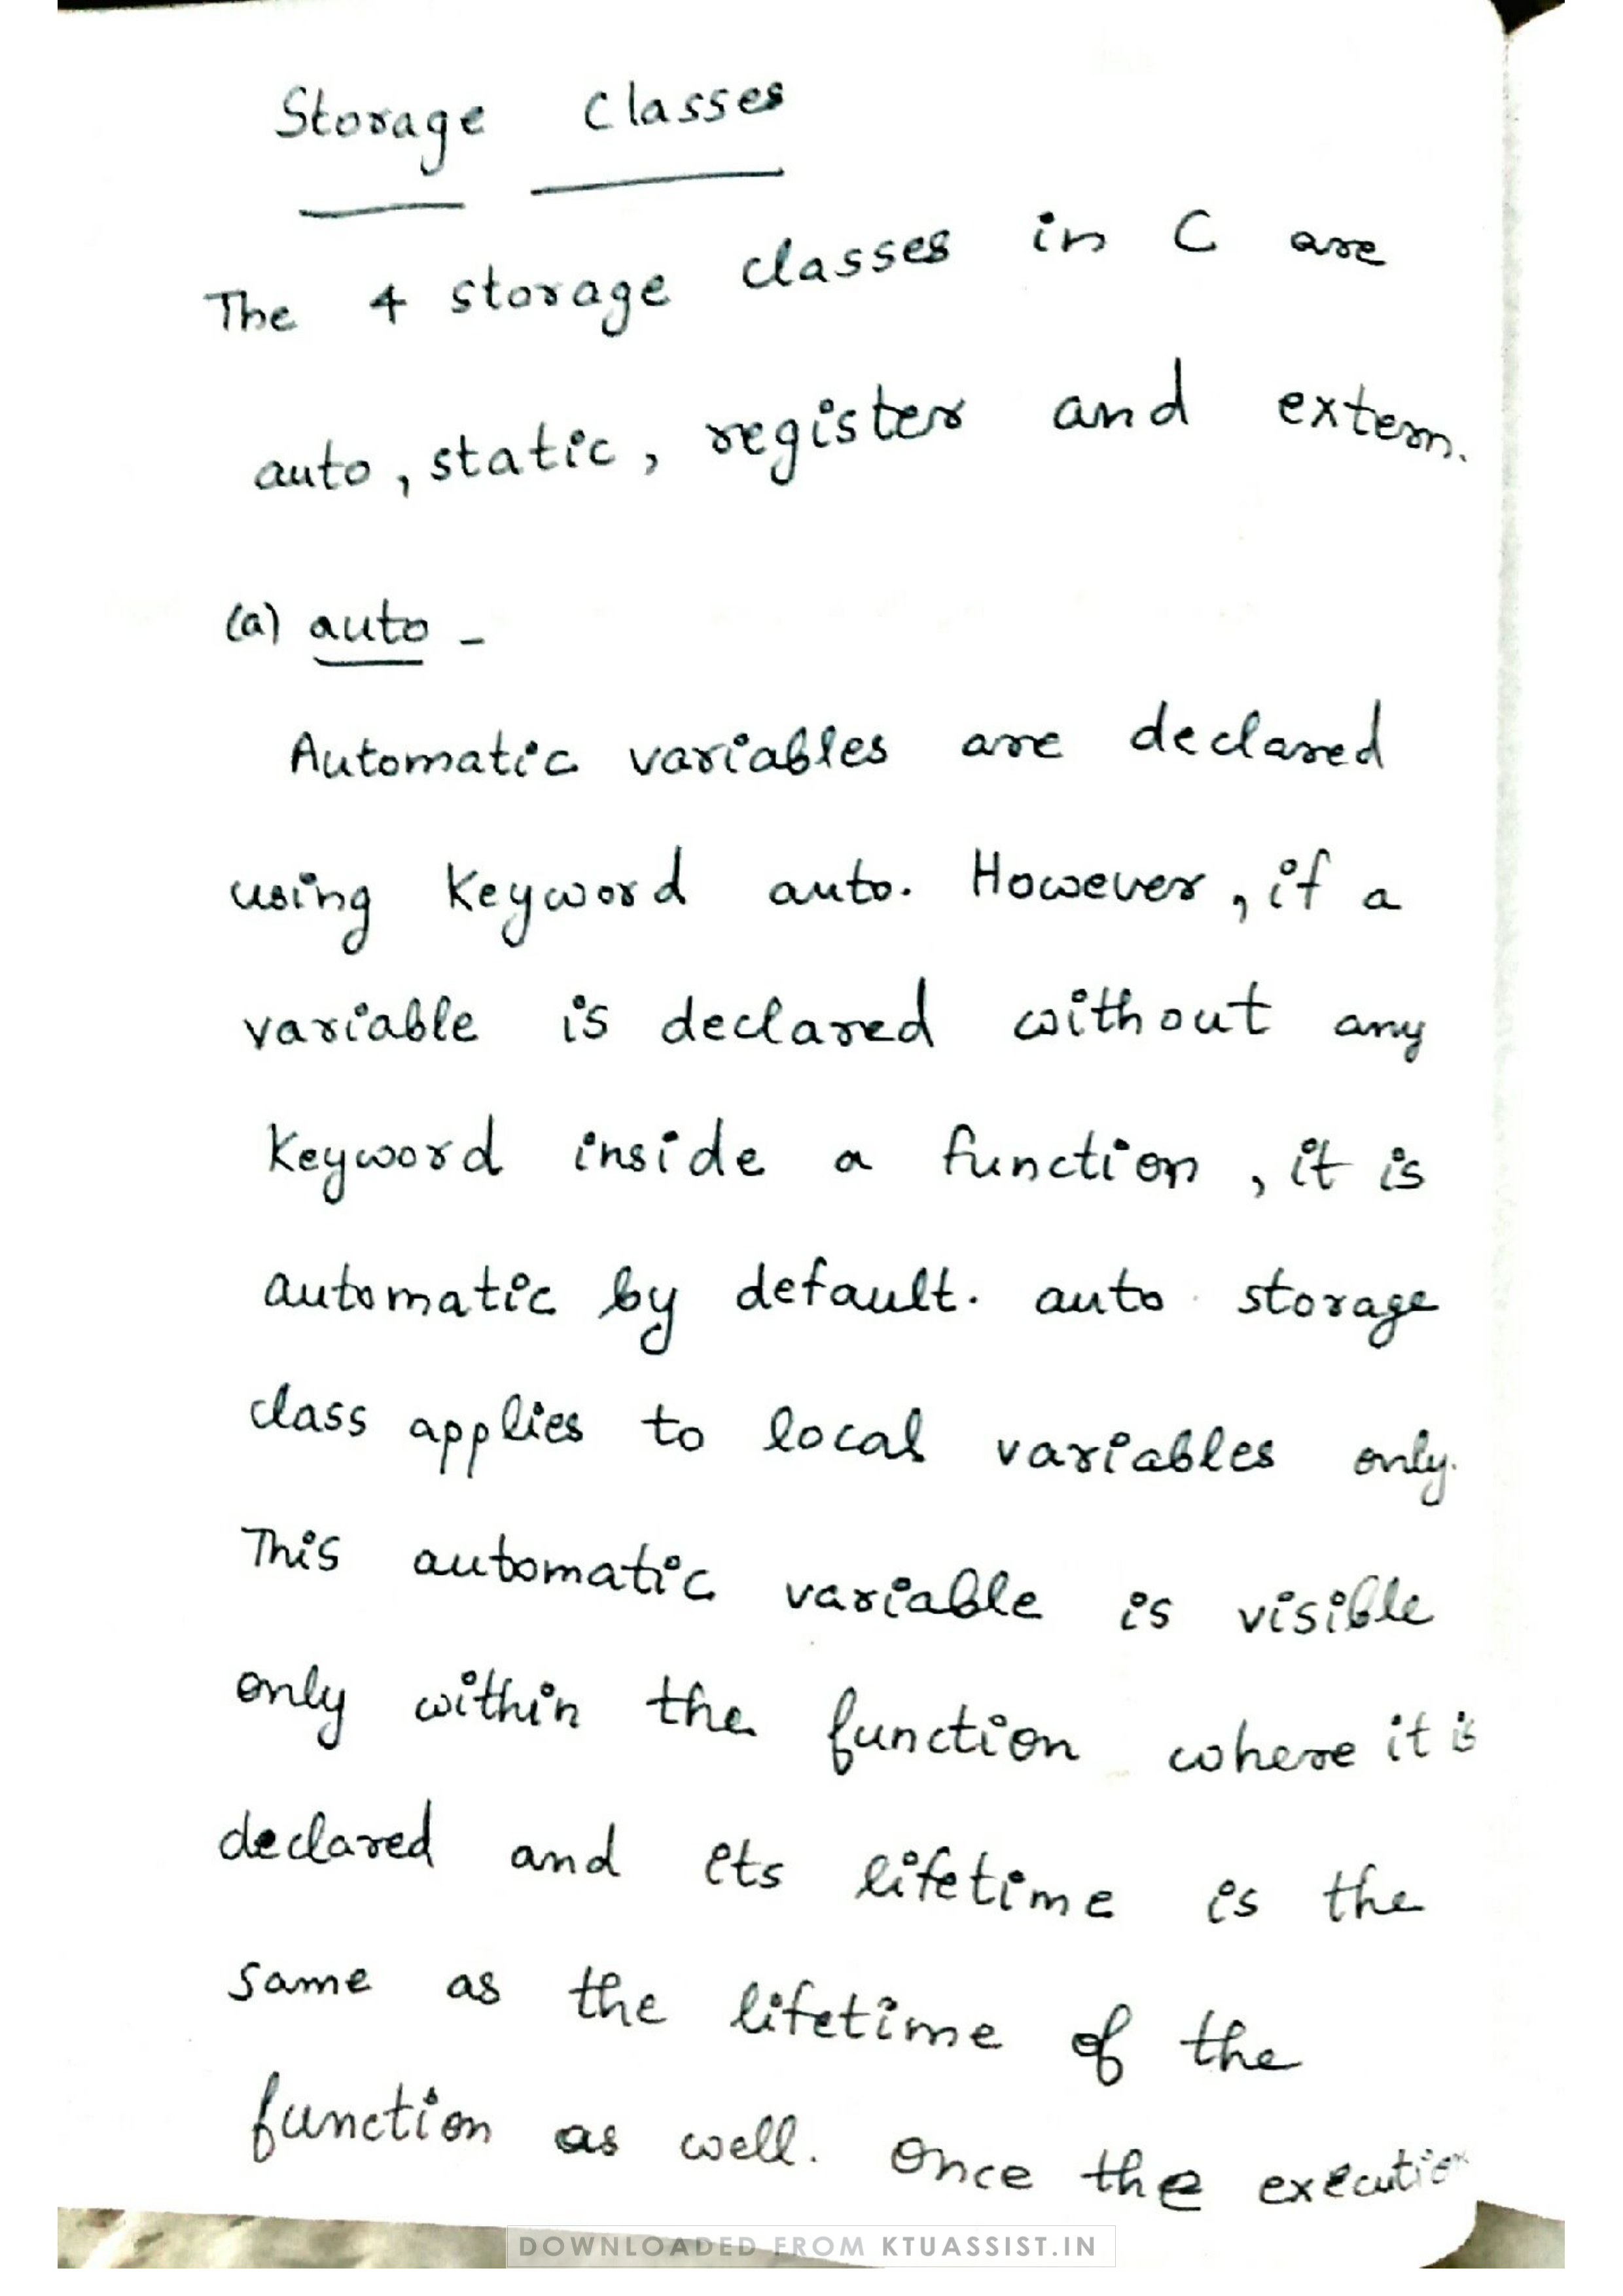 Storage Classes
The 4 storage classes in C are
auto, static, register and extern.
(a) auto -
Automatic variables are declared
using keyword auto. However, if a
variable is declared without any
keyword inside a function, it is
automatic by default. auto storage
class applies to local variables only.
This automatic variable is visible
only within the function where it is
declared and its lifetime is the
same as the lifetime of the
function as well. Once the execution
DOWNLOADED FROM KTUASSIST.IN